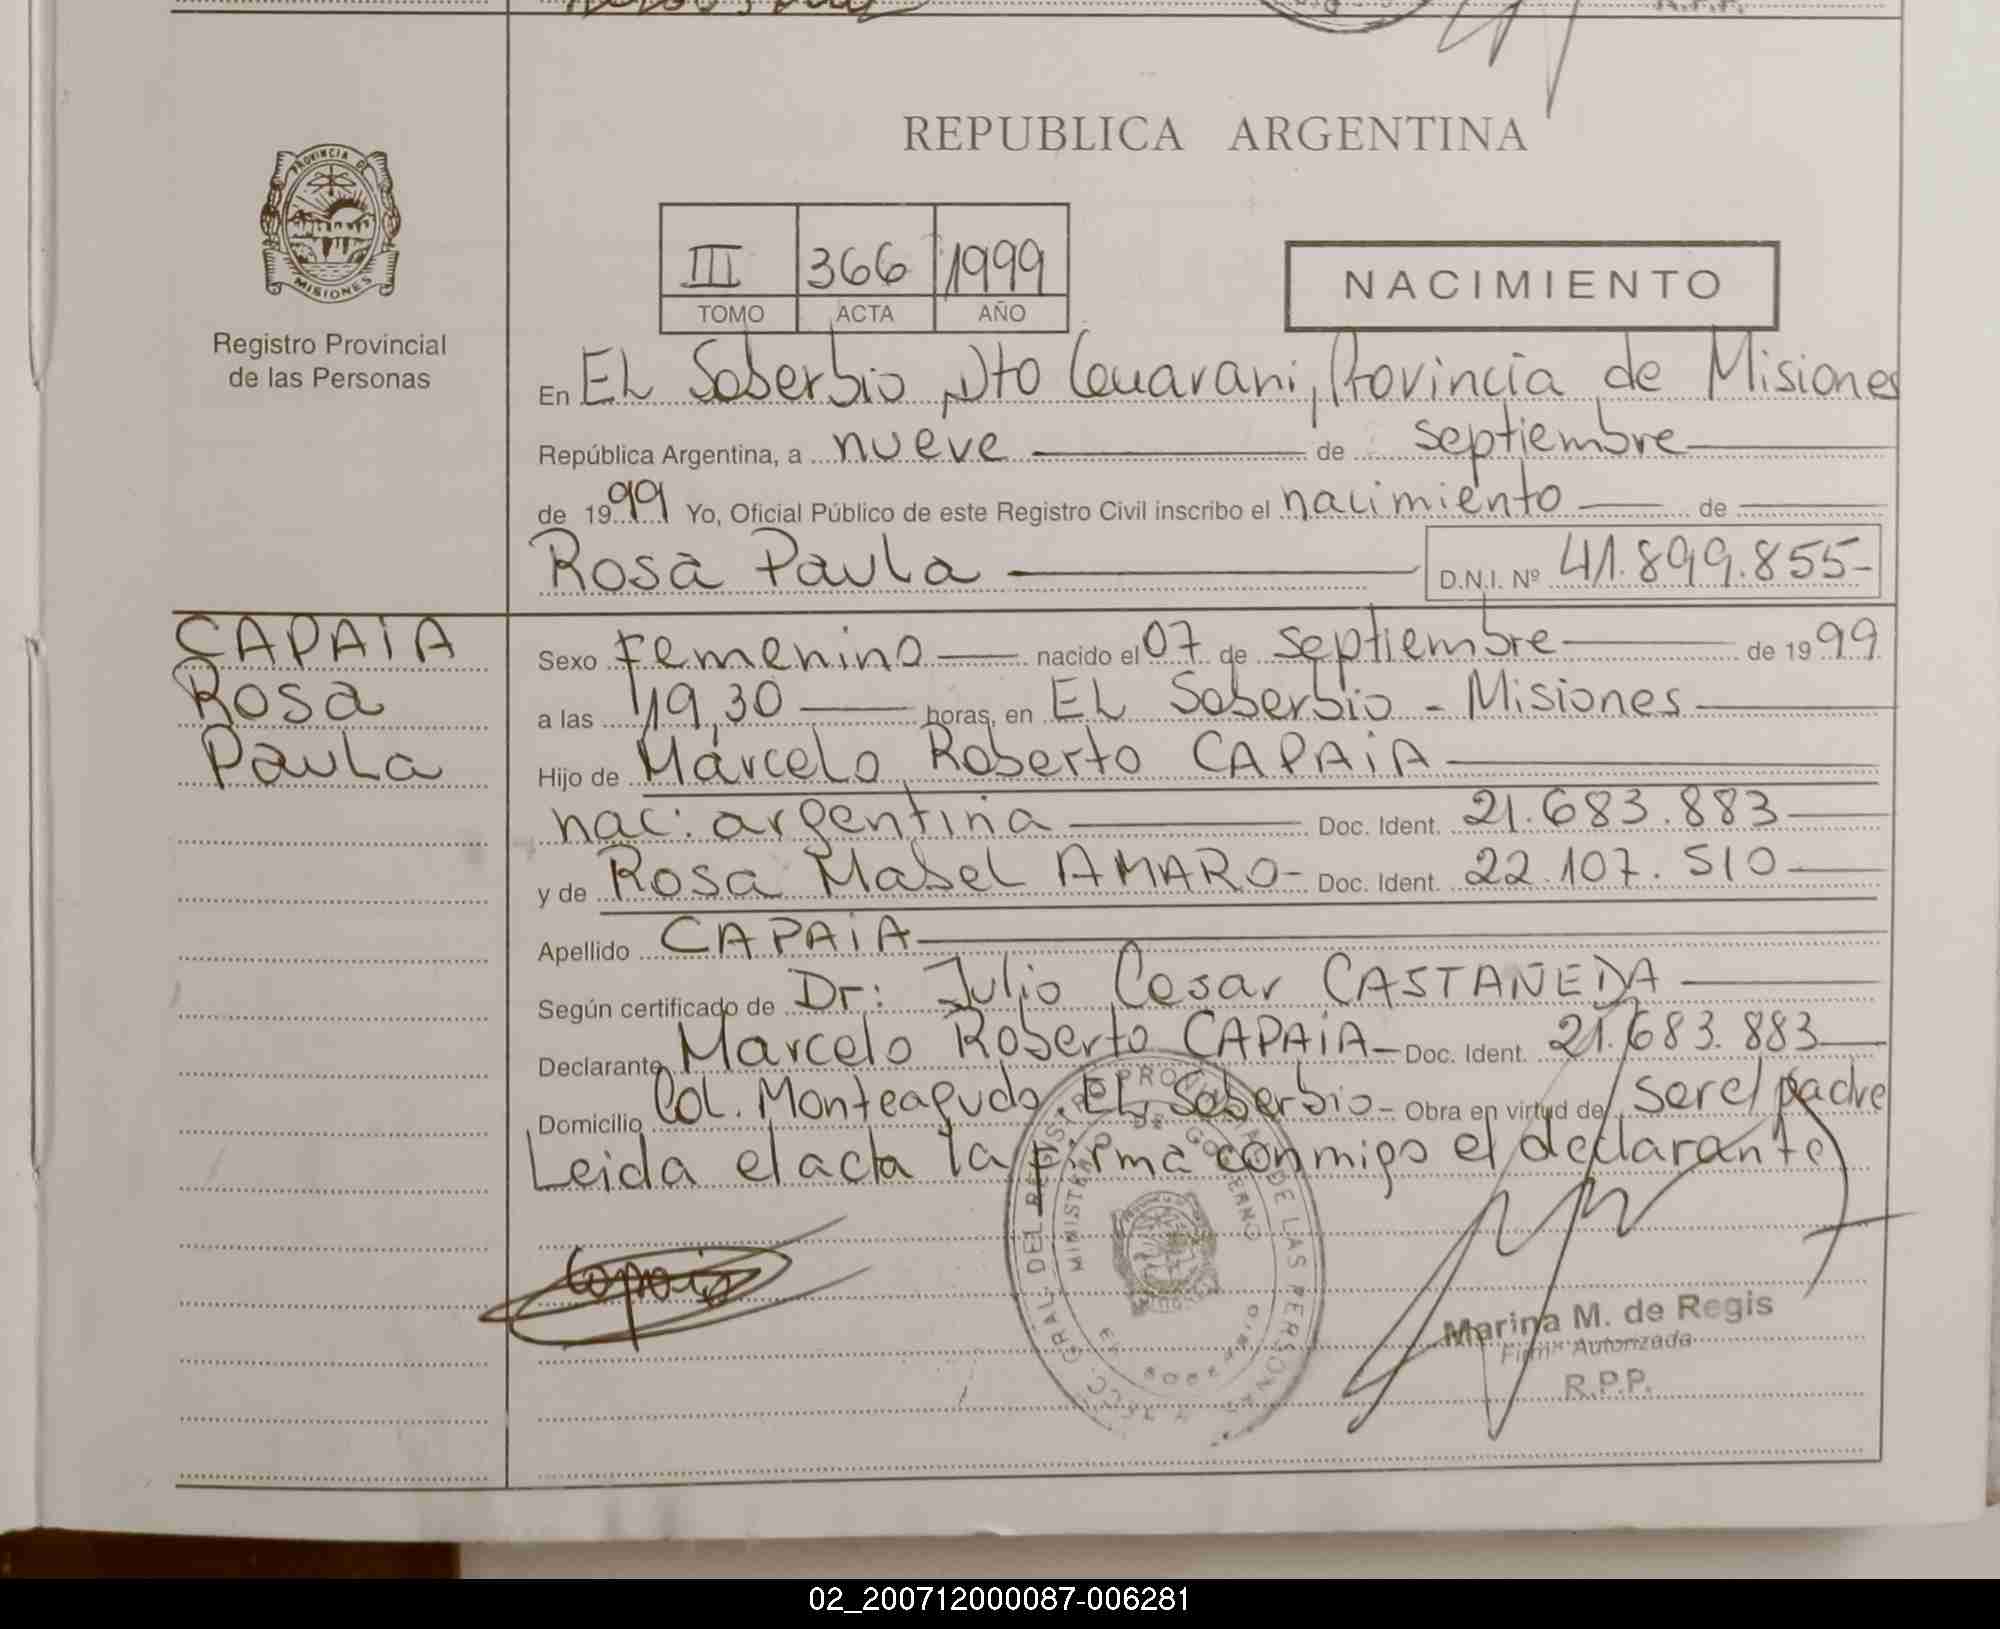 REPUBLICA ARGENTINA
PROVINCIA DE
MISIONES
Registro Provincial
de las Personas
III 366 1999
TOMO ACTA AÑO
NACIMIENTO
En EL Soberbio, Dto Guarani, Provincia de Misiones
República Argentina, a nueve de septiembre
de 1999 Yo, Oficial Público de este Registro Civil inscribo el nacimiento de
Rosa Paula D.N.I. Nº 41.899.855-
CAPAiA
Rosa
Paula
Sexo Femenino nacido el 07 de septiembre de 1999
a las 19,30 horas, en EL Soberbio - Misiones
Hijo de Marcelo Roberto CAPAiA
nac: argentina Doc. Ident. 21.683.883
y de Rosa Mabel AMARO- Doc. Ident. 22.107.510
Apellido CAPAiA
Según certificado de Dr: Julio Cesar CASTAÑEDA
Declarante Marcelo Roberto CAPAiA- Doc. Ident. 21.683.883
Domicilio Col. Monteagudo, EL Soberbio- Obra en virtud de ser el padre
Leida el acta la firma conmigo el declarante
Capaia
GRAL. DEL REGISTRO PROVINCIAL DE LAS PERSONAS
MINISTERIO DE GOBIERNO
Marina M. de Regis
Firma Autorizada
R.P.P.
02_200712000087-006281